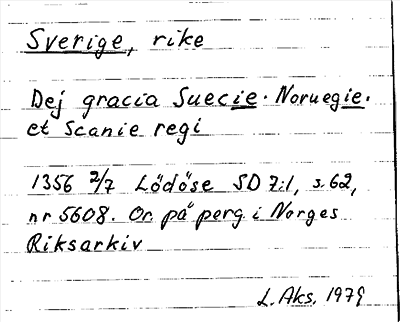 Sverige, rike
Dej gracia Suecie. Noruegie.
et Scanie regi
1356 2/7 Lödöse SD 7:1, s. 62,
nr 5608. Or. på perg. i Norges
Riksarkiv
L. Aks, 1979